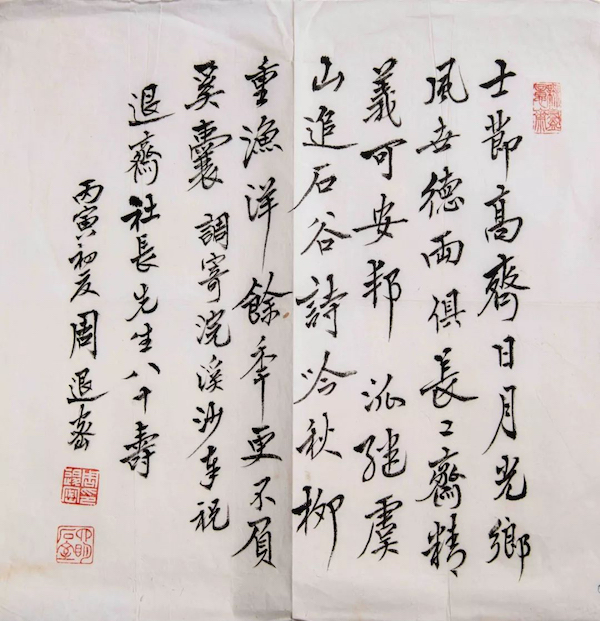 士節高齊日月光鄉
風世德兩俱長〻齋精
義可安邦 派繼虞
山追石谷詩吟秋柳
重漁洋餘年更不負
奚囊 調寄浣溪沙奉祝
退齋社長先生八十壽
丙寅初夏周退密